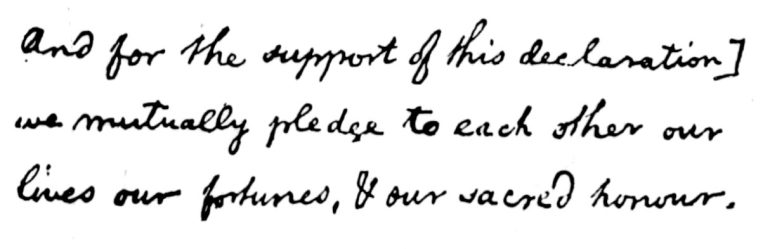 and for the support of this declaration]
we mutually pledge to each other our
lives our fortunes, & our sacred honour.